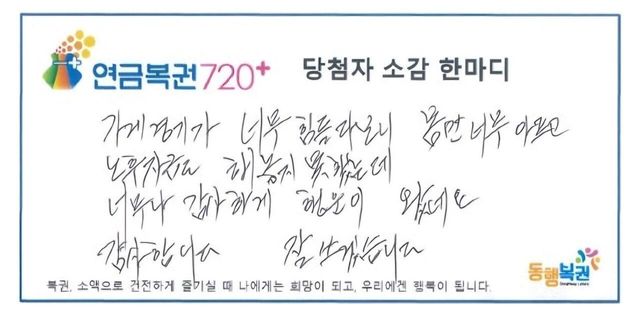 연금복권720+ 당첨자 소감 한마디
가게 경기가 너무 힘들다보니 몸만 너무 아프고
노후자금도 해놓지 못했는데
너무나 감사하게 행운이 왔네요
감사합니다 잘 쓰겠습니다
동행복권
복권, 소액으로 건전하게 즐기실 때 나에게는 희망이 되고, 우리에겐 행복이 됩니다.